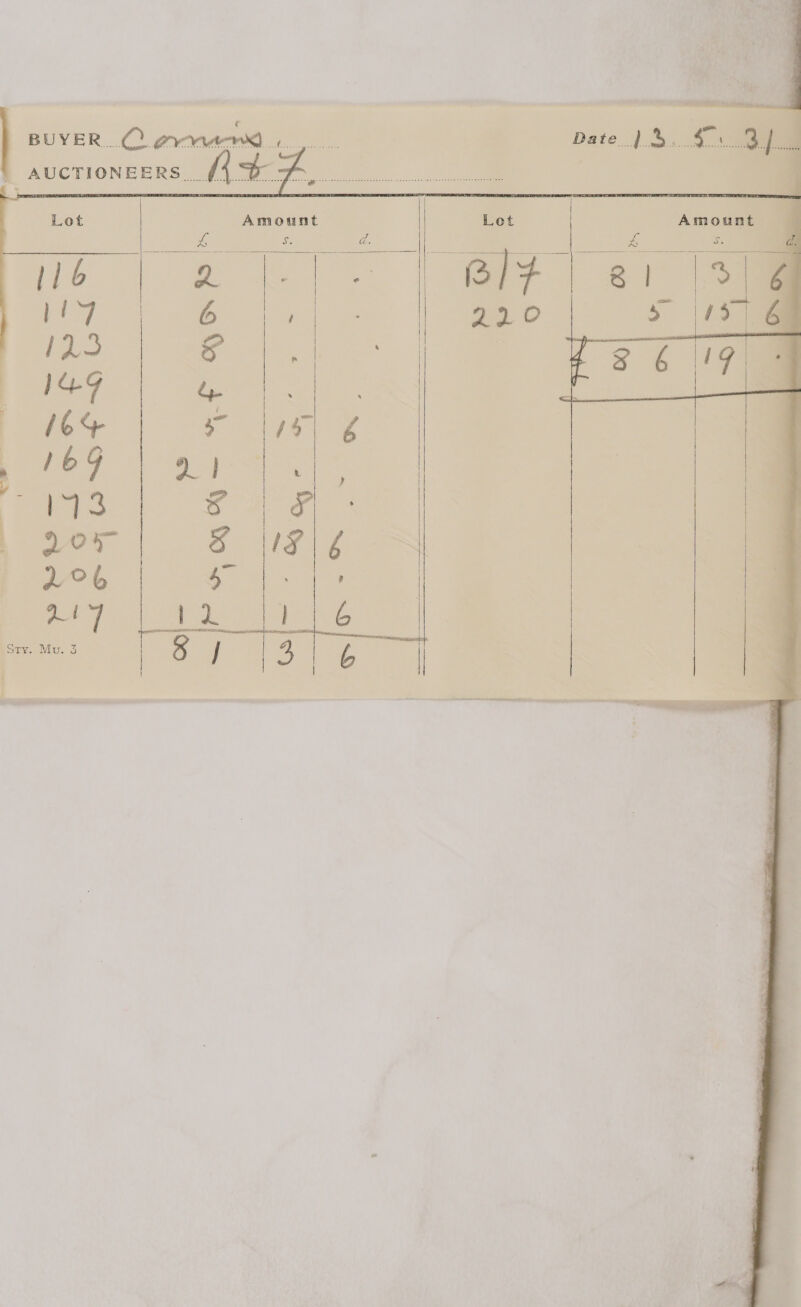 BUYER Date 13. 5. 31
AUCTIONEERS R & F
Lot Amount Lot Amount
£ s. d. £ s. d.
116 2 - - B/F 81 3 6
117 6 , - 220 5 15 6
123 8 . . £ 86 19 .
149 4 . .
164 5 15 6
169 21 . ,
173 8 8 .
205 8 18 6
206 5 . ,
217 12 1 6
Sty. Mu. 3 81 3 6